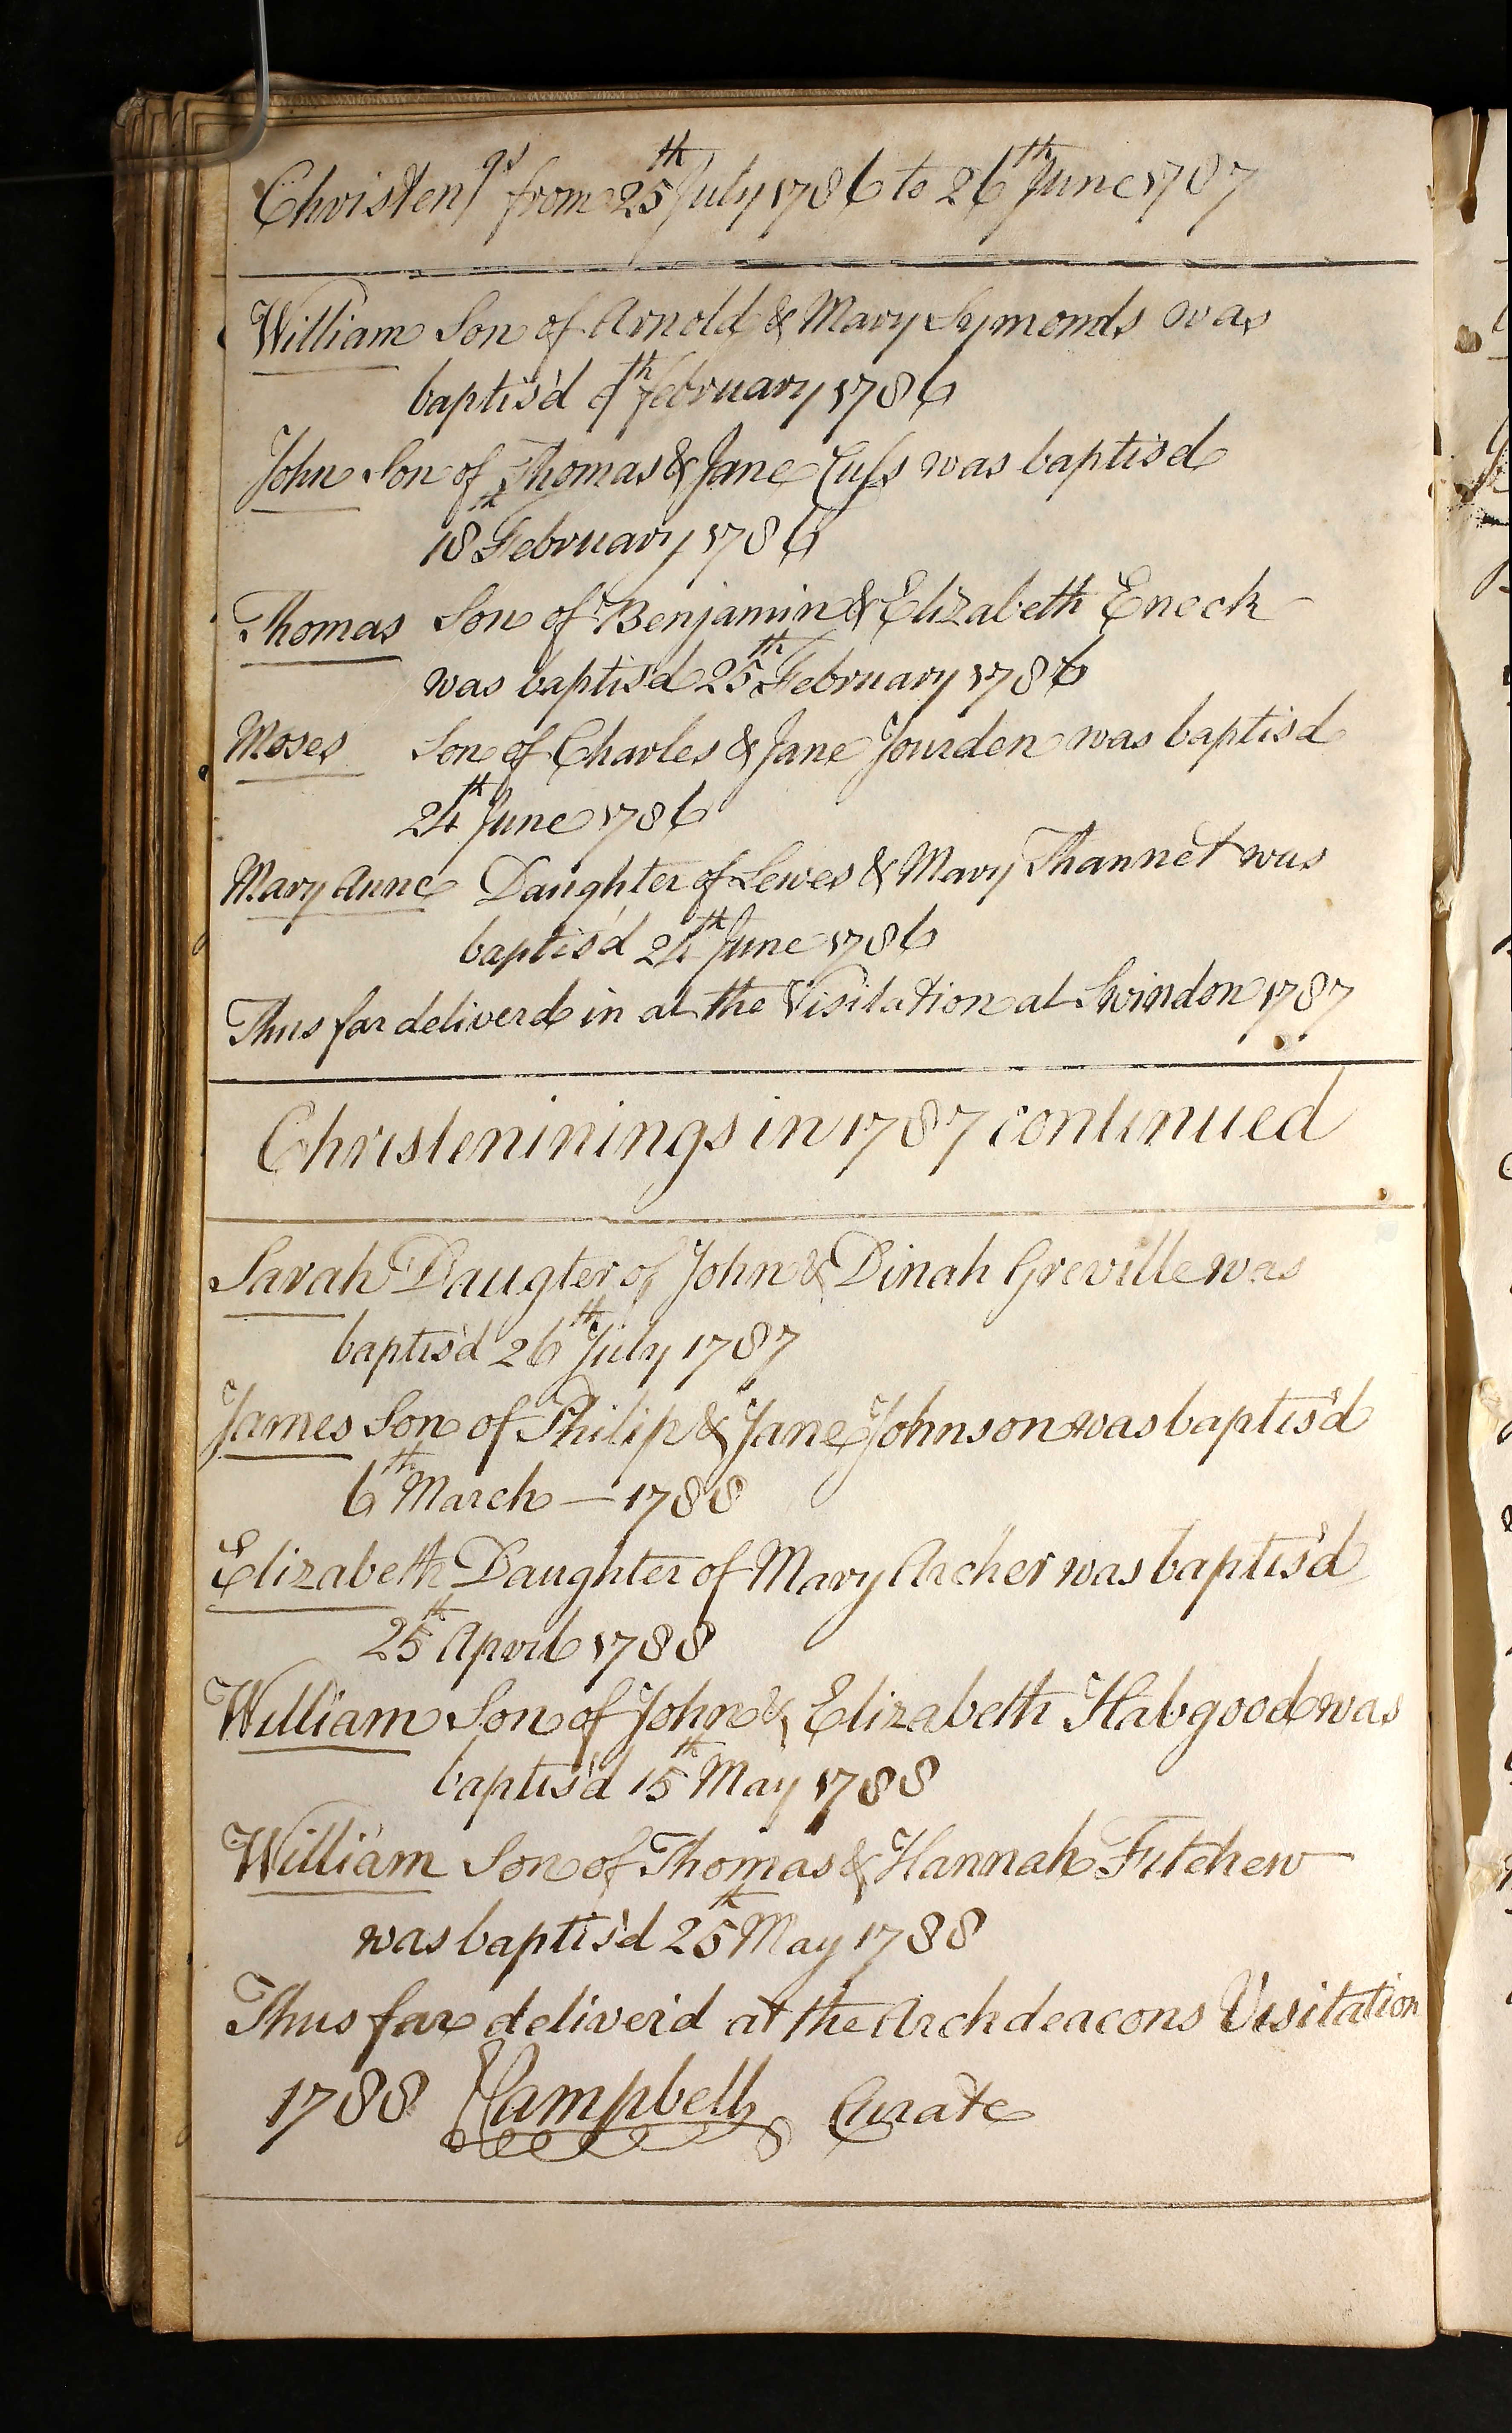 Christen^gs from 25^th July 1786 to 26^th June 1787
William Son of Arnold & Mary Symonds was
baptis'd 4^th February 1786
John Son of Thomas & Jane Cuſs was baptisd
18^th February 1786
Thomas Son of Benjamin & Elizabeth Eneck
was baptisd 25^th February 1786
Moses Son of Charles & Jane Jourden was baptisd
24^th June 1786
Mary Anne Daughter of Lewes & Mary Thannet was
baptis'd 24^th June 1786
Thus far deliverd in at the Visitation at Swindon 1787
Christeninings in 1787 continued
Sarah Daugter of John & Dinah Greville was
baptis'd 26^th July 1787
James Son of Philip & Jane Johnson was baptis'd
6^th March — 1788
Elizabeth Daughter of Mary Archer was baptis'd
25^th April 1788
William Son of John & Elizabeth Habgood was
baptis'd 15^th May 1788
William Son of Thomas & Hannah Fitchew
was baptis'd 25^th May 1788
Thus far deliver'd at the Archdeacons Visitation
1788 Campbell Curate